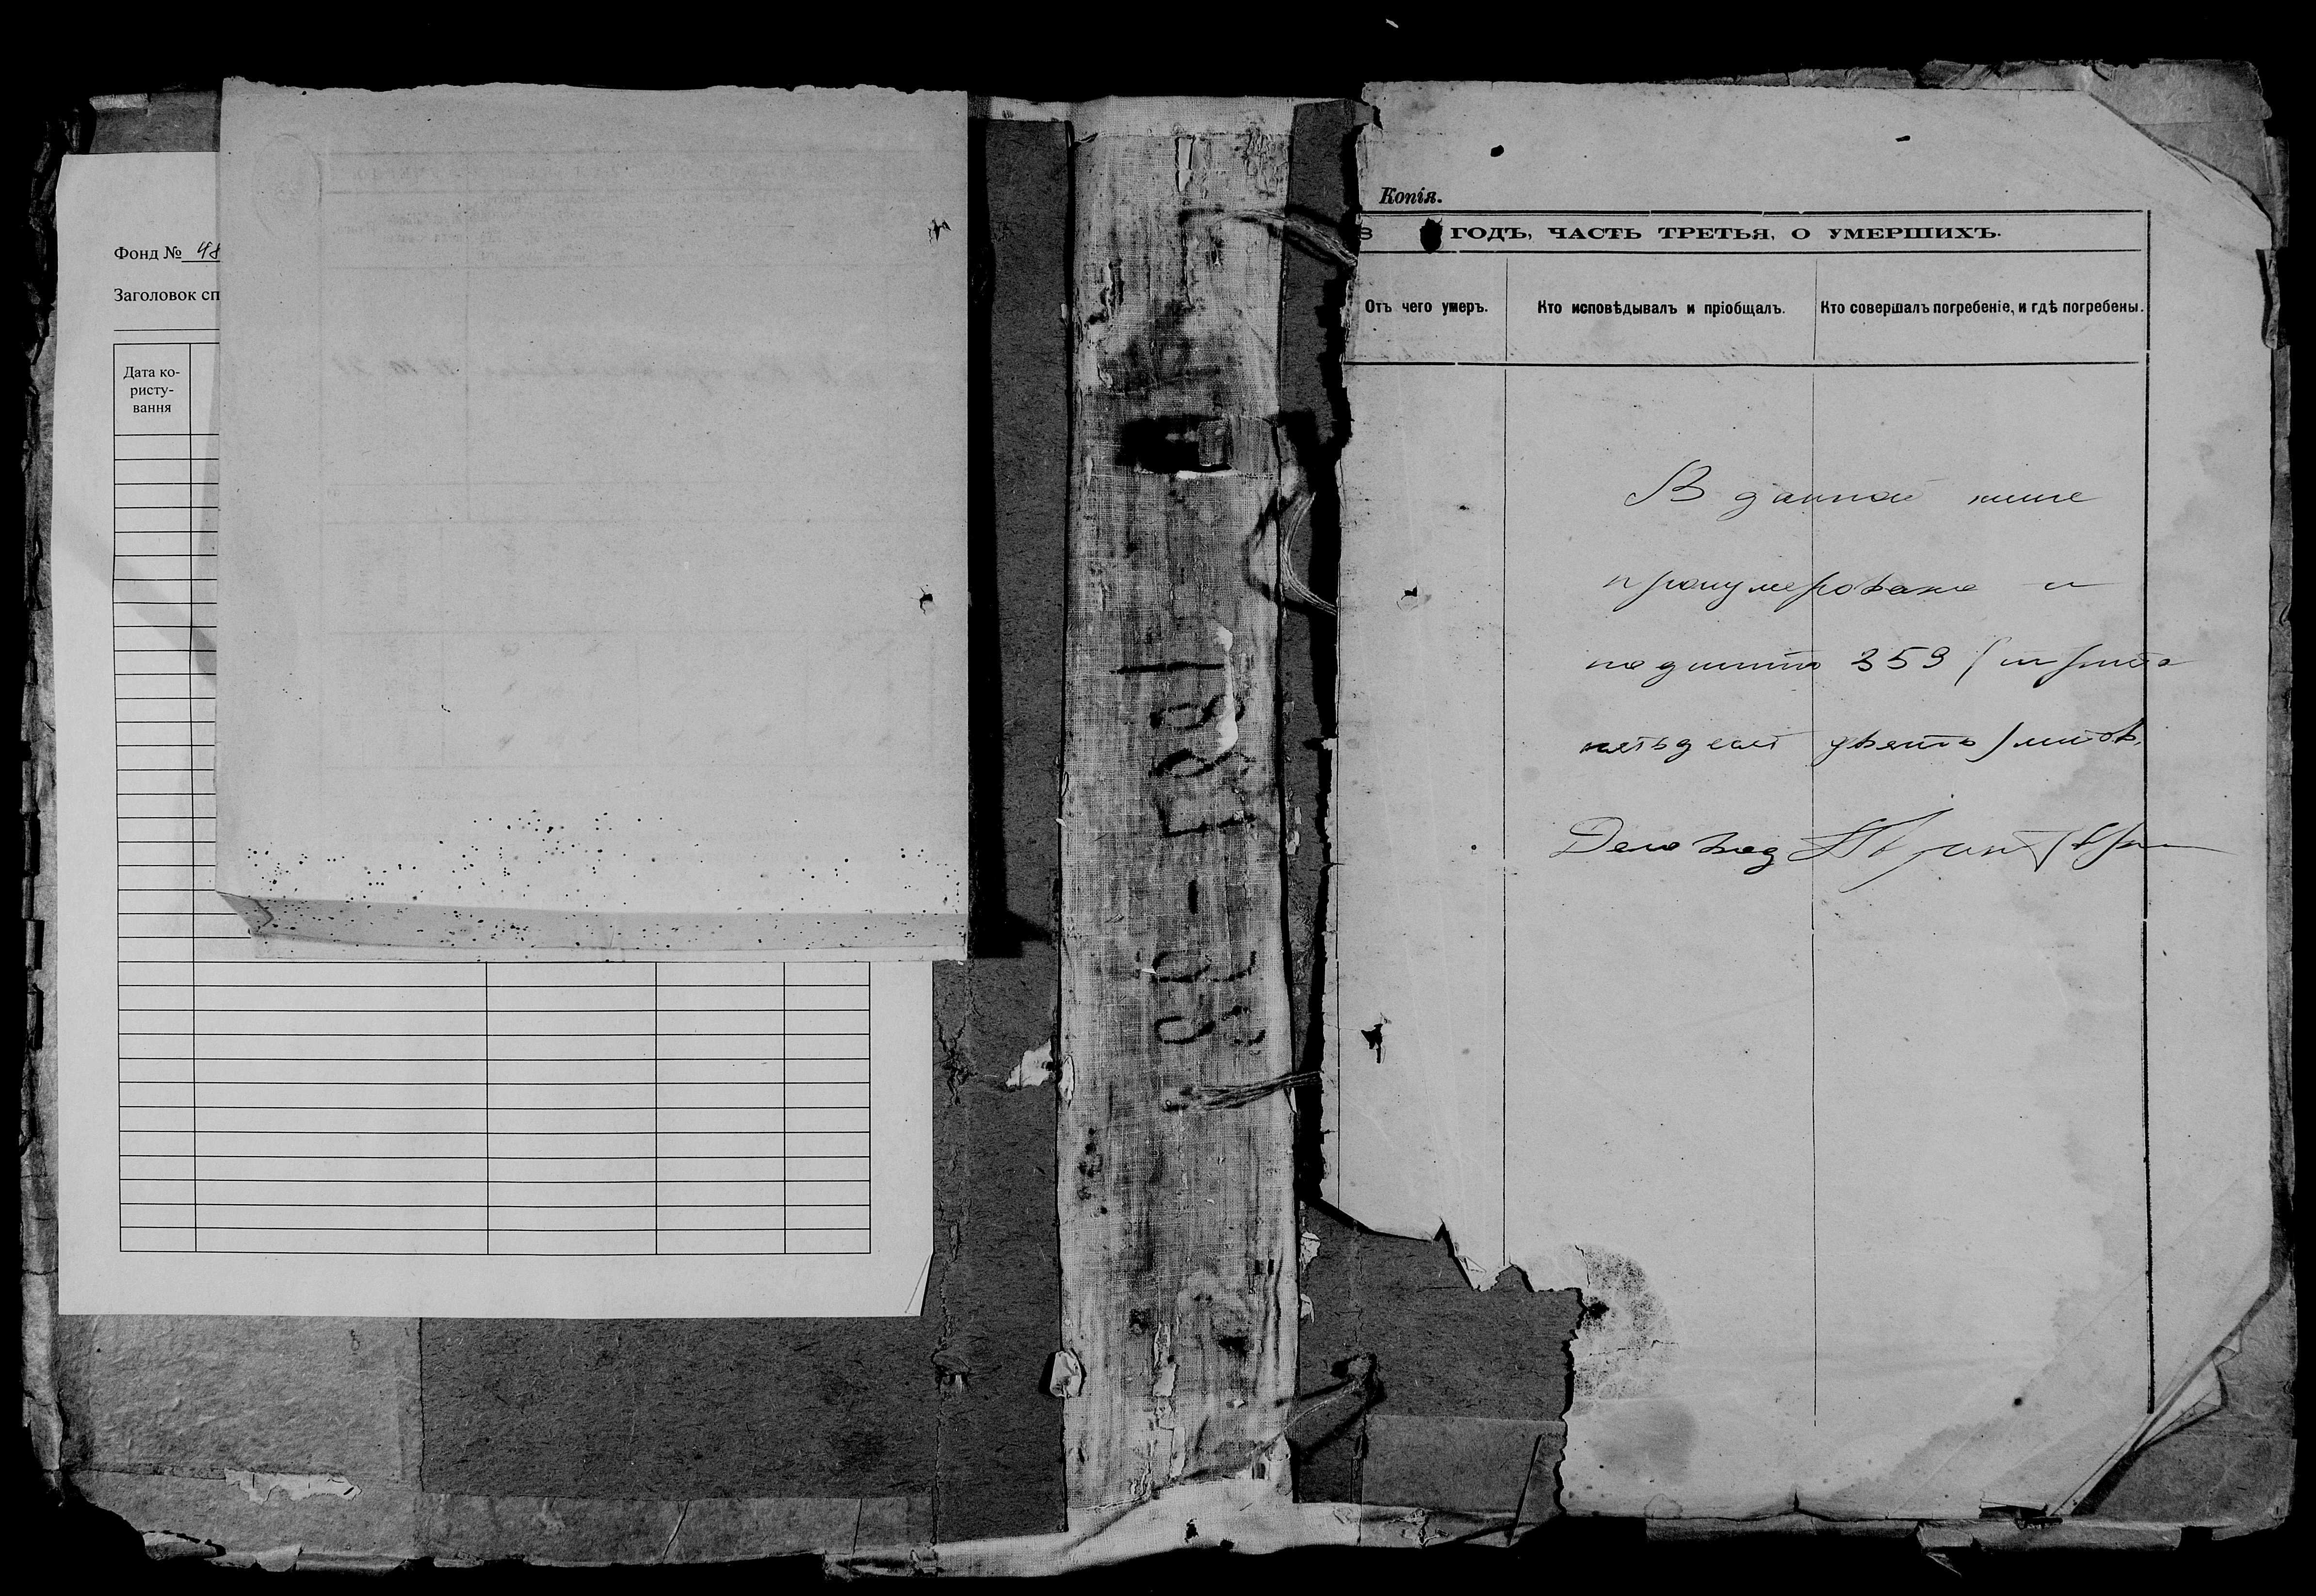 Фонд № 48
Заголовок сп
Дата ко-
ристу-
вання
1881
Копія.
8 ГОДЪ, ЧАСТЬ ТРЕТЬЯ, О УМЕРШИХЪ.
Отъ чего умеръ.
Кто исповѣдывалъ и пріобщалъ.
Кто совершалъ погребеніе, и гдѣ погребены.
В данной книге
пронумеровано и
подшито 359 (триста
пятьдесят девять) листов.
Деловод